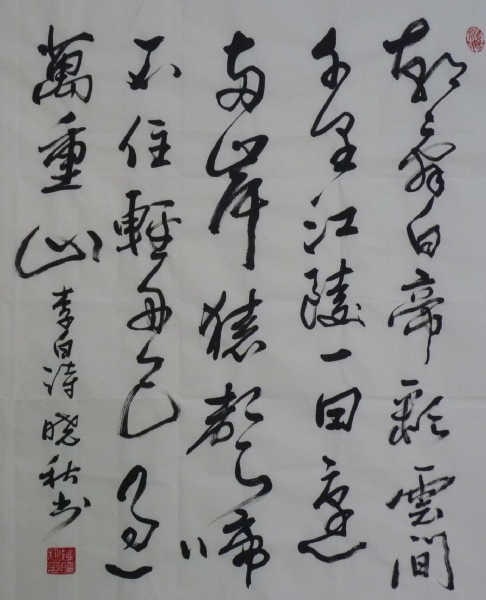 朝辭白帝彩雲間
千里江陵一日還
兩岸猿聲啼
不住輕舟已過
萬重山 李白詩 曉秋书